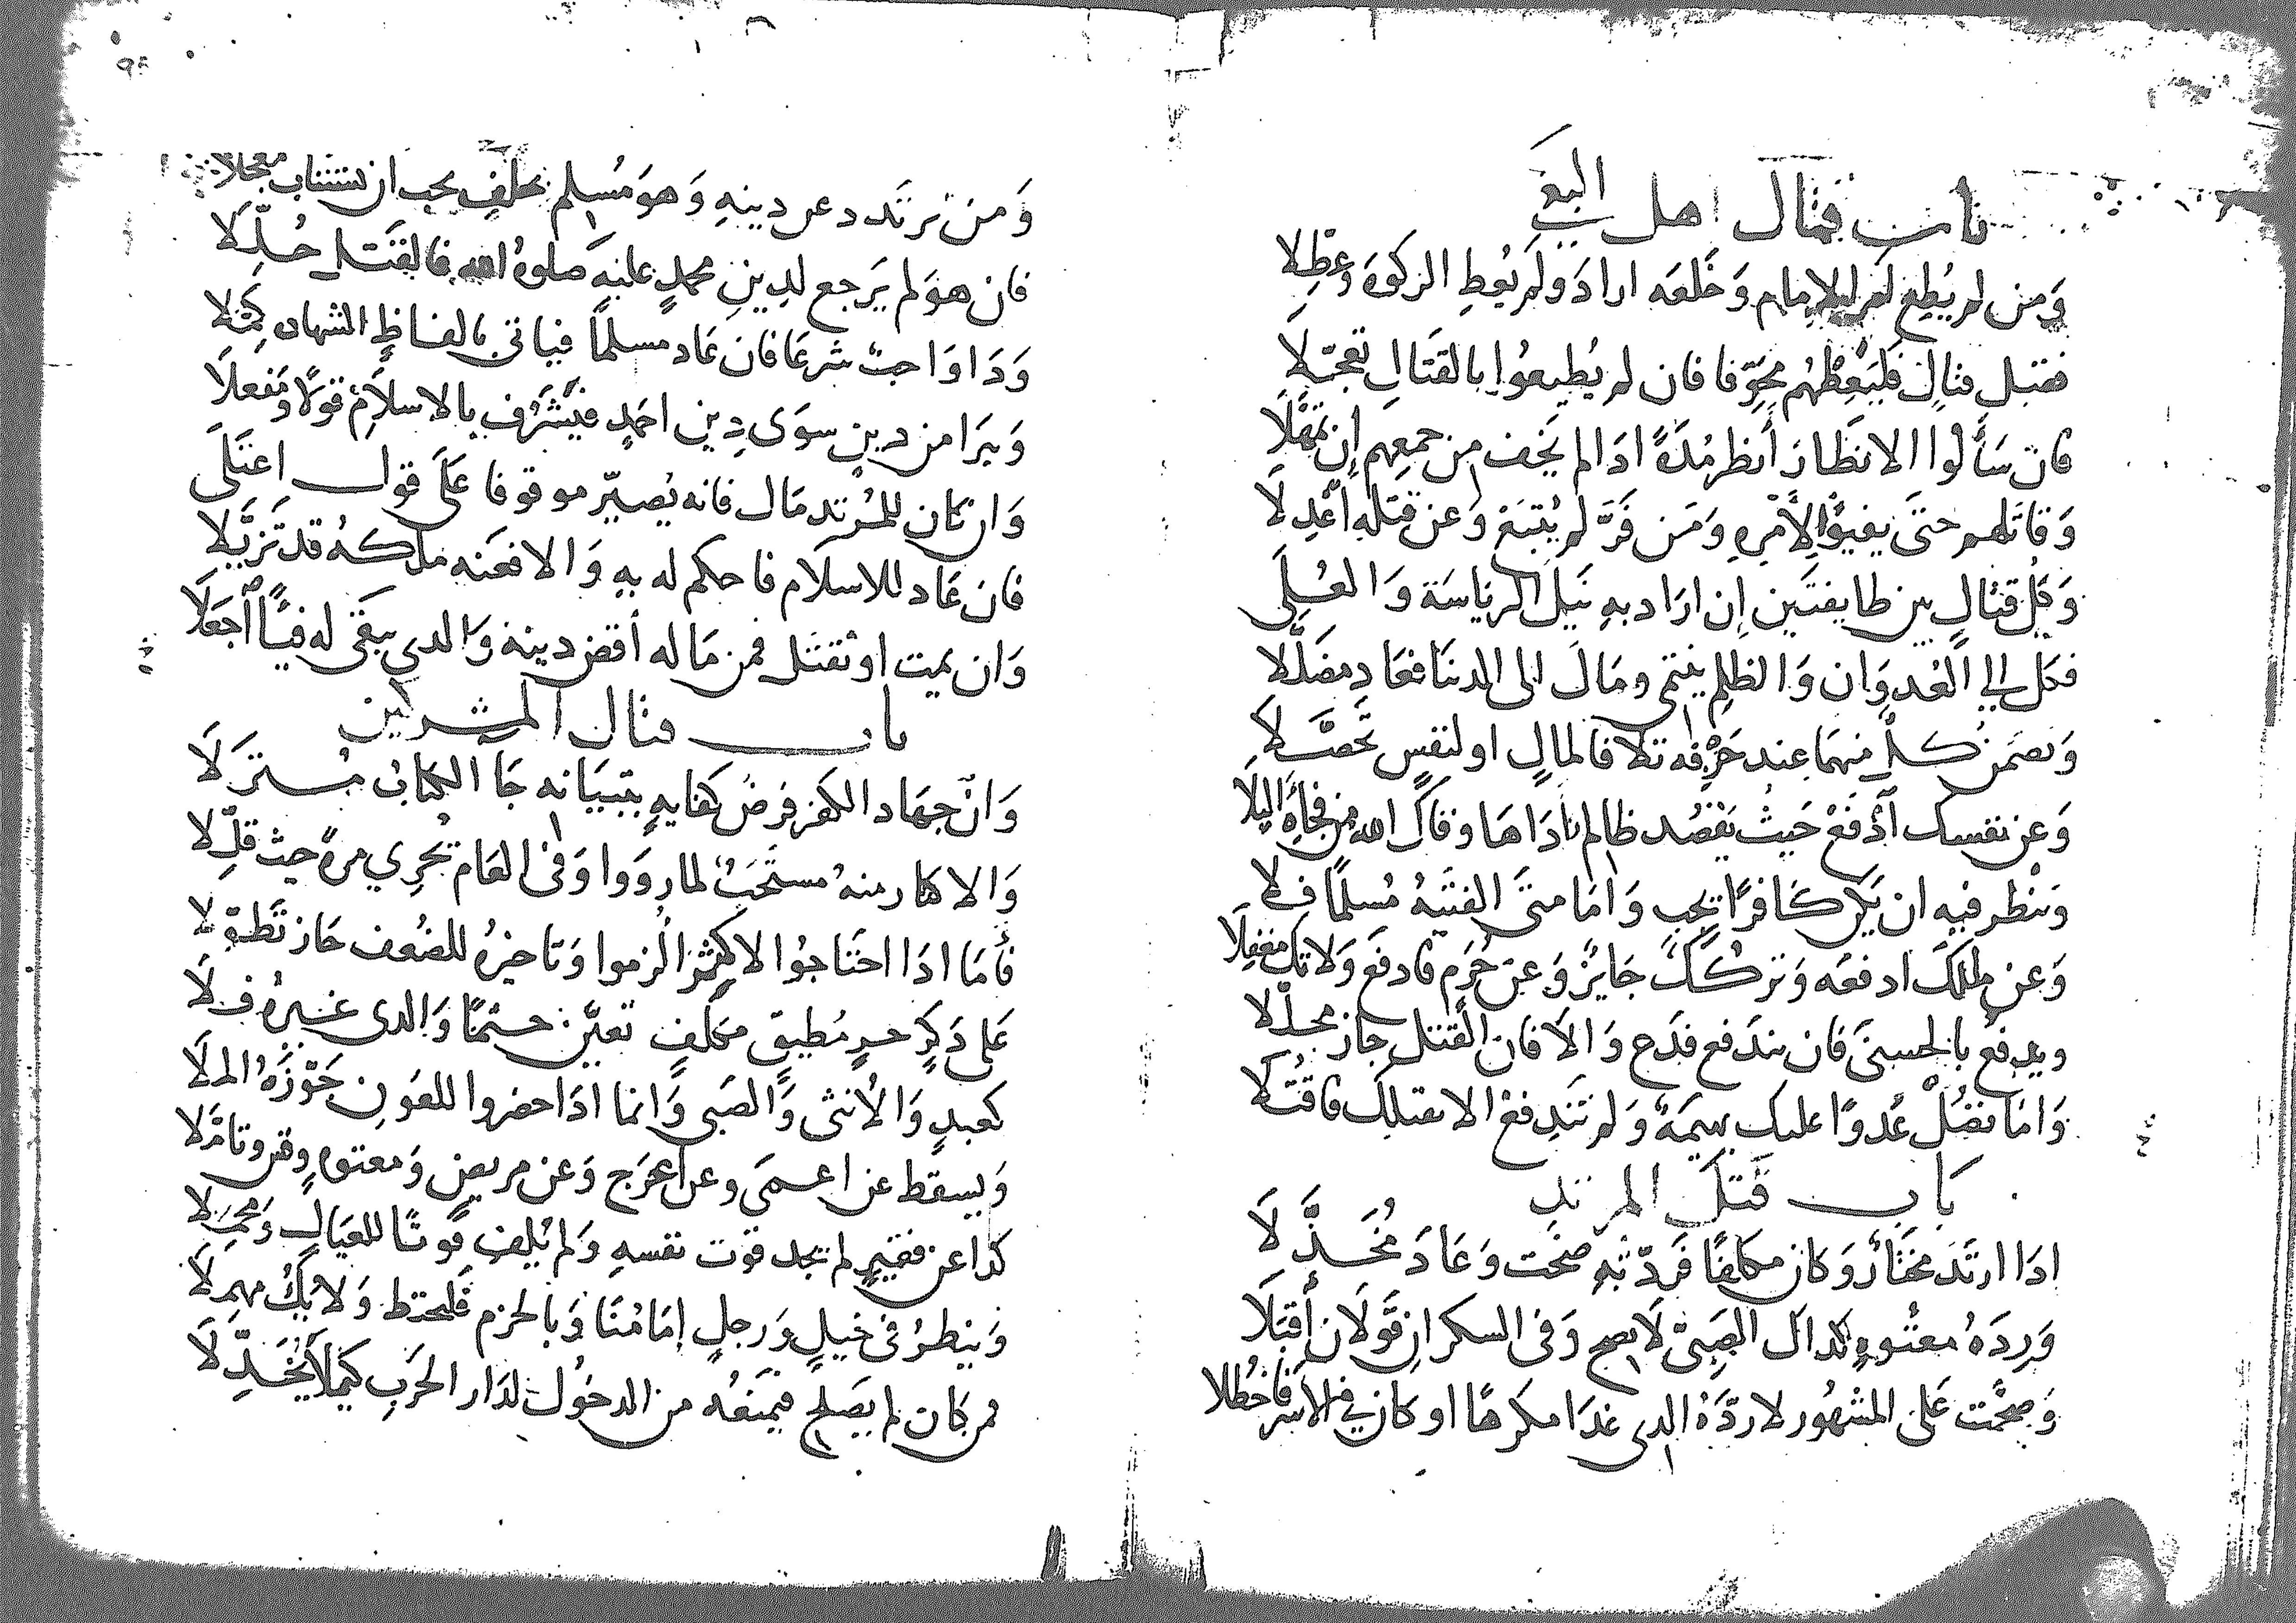 باب قتال اهل البغي
وَمن لم يُطِع للإمام وَخَلعَه ارادَ ولَم يُعطِ الزكوةَ وعطِلا
فقبل قتالٍ فليَعِظْهُم مخوّفا فان لم يُطيعُوا بالقتال تعجّلا
فان سَألوا الانظَارَ أنظر مُدَّةً اذا لم يَخف من جمعِهم إن تمهّلَا
وَقاتلهم حتَى يفيؤا لأمْرِهِ وَمَن فَرَّ لم يُتبَعْ وَعن قتلهِ اعْدِلَا
وَكل قتالٍ بين طايفتَين إن ارَاد بهِ نَيل الرياسَة وَالعُلَى
فكل الي العُدوَان وَالظلمِ ينتمى ومَالَ الى الدنيَا فعَادَ مضَلّلا
وَيضمَن كلٌ منهمَا عِند حَرْفِه تلافا لمالٍ او لنفسٍ تحصّلا
وَعن نفسك اَدْفَعْ حَيثُ يَقصُد ظالم اذاهَا وقاك الله من فجأة البلَا
وَينْظر فيهِ ان يكن كَافرًا يجب وَامَا متَى الفيَتهُ مُسلمًا فلا
وَعن ملكك ادفعَه وَتركُكَ جَايزٌ وَعن حُرَمٍ فادفَع وَلا تكُ مغفِلَا
ويدفع بالحسنىَ فان يندَفع فدَع وَالا فان القتل جاز محلّلا
وَامَا تصُلْ عُدوًا عليك بهيمَةٌ وَلم تندِفعْ الا بقتلك فاقتُلا
بَاب قتَل المرتد
اذَا ارتَدَ مختَارٌ وَكان مكلفًا فَردّتهُ صَحّت وَعَادَ مُخَذّلَا
وَرِدَةُ معتُوهٍ كذاك الصَبىّ لَا يصح وَفى السكران قَولَان أقبَلَا
وَصحّت عَلى المشهُور لا ردّةُ الذى غدَا مكرهًا او كان في الاسر فاخطُلا
وَمن يرتَدد عن دينهِ وَهوَ مُسلم مكلف يجب ان يستتاب معجلا
فان هوَ لم يَرجع لدِينِ محمدٍ عليَهِ صلوةُ الله فالقتَل حُلّلَا
وَذا وَاجبٌ شرعَا فان عَاد مسلمًا فياتى بالفاظِ الشهاده كمّلا
وَيبرَا من دينٍ سوَى دِين احمَدٍ فيشَرُف بالاسلَام قولًا ومَفعلَا
وَان كان للمُرتد مَال فانه يُصيّر موقوفا عَلَى قول اعتَلَى
فان عَاد للاسلَام فاحكم له بهِ وَالا فعَنه ملكهُ قد تَزيَّلا
وَان يمت او يُقتَل فمن مَاله أقضِ دينهُ وَالذي يبقَى له فيئًا اجعَلا
باب قتال المشركين
وَانّ جهَاد الكفر فرضُ كفَايهٍ بتبيَانه جَا الكتابُ مُنزلَا
وَالاكثار منهُ مستَحَبٌ لما رَوَوا وَفى العَام يجري مرةً حيث قلّلا
فأمَا اذَا احتَاجُوا لاكثر ألزموا وَتاخيرُهُ للضُعف جَاز تَطَوّلا
عَلى ذكَرٍ حرٍ مُطيقٍ مكلفٍ تعيّن حتمًا وَالذى غيرهُ فلَا
كعبدٍ وَالأنثى وَالصَبى وَانما اذَا حضروا للعَونِ جَوّزَهُ الملَا
وَيسقط عن اعمَى وعن اعرَج وَعن مريض وَمعتوهٍ
كذا عن فقيرٍ لم يجد قوت نفسهِ وَلم يُلفِ قوتًا للعيَالِ وَمحمِلا
وَينظرُ في خيلٍ وَرجلٍ إمَامُنَا وَبالحزم فليحتط وَلا يَكُ مهمِلَا
من كان لم يصَلح فيمنَعُه من الدخُول لدَار الحَرب كيلا يُخَذّلَا